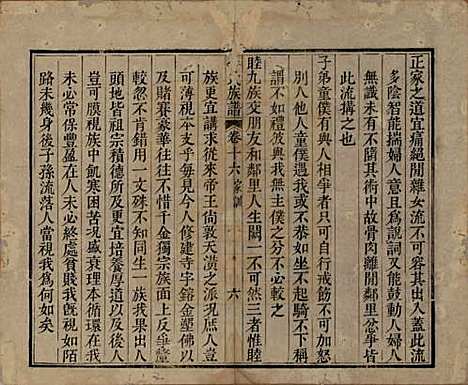 正家之道宜痛絕閒雜女流不可令其出入蓋此流
多陰智能揣婦人意且善為諛詞又能動人婦人
無識未有不隨其術中故骨肉離閒鄰里忿爭皆
此流搆之也
子弟童僕有與人相忤者皆可自行戒飭不可加
別人也他人童僕遇我或不恭如坐不起騎不下稱
謂不如禮彼與我無主僕之分不必較之
睦九族交朋友和鄰里人生闕一不可然三者惟睦
族譜 卷十六 家訓 六
族更宜講求從來帝王倘敦天潢之派况庶人豈
可薄視本支乎每見今人修建寺宇鎔金塑佛以
及賭賽豪華往往不惜千金獨宗族面上反垂垂
較忽不肯錯用一文殊不知同生一族我果出人
頭地皆祖宗積德所生發正宜培養厚道以及後人
豈可膜視族中飢寒困苦者盛衰理本循環在我
未必常保豐盈在人未必終處貧賤我既視如陌
路未幾身後子孫流落人當視我為何如矣